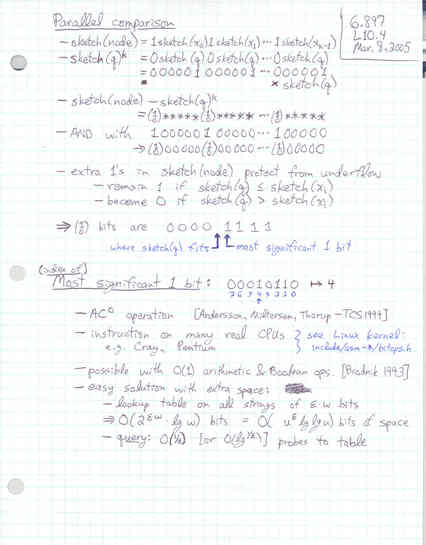 Parallel comparison
6.897
L10.4
Mar. 8, 2005
- sketch(node) = 1sketch(x₀)1sketch(x₁)⋯1sketch(xₖ₋₁)
- sketch(q)ᵏ = 0sketch(q)0sketch(q)⋯0sketch(q)
= 000001 000001 ⋯ 000001
* sketch(q)
- sketch(node) - sketch(q)ᵏ
= (⁰/₁)*****(⁰/₁)*****⋯(⁰/₁)*****
- AND with 1000001 00000⋯100000
→ (⁰/₁)00000(⁰/₁)00000⋯(⁰/₁)00000
- extra 1's in sketch(node) protect from underflow
- remain 1 if sketch(q) ≤ sketch(xᵢ)
- become 0 if sketch(q) > sketch(xᵢ)
⇒ (⁰/₁) bits are 0000 1111
where sketch(q) fits most significant 1 bit
(index of)
Most significant 1 bit: 00010110 ↦ 4
7 6 5 4 3 2 1 0
- AC⁰ operation [Andersson, Miltersen, Thorup - TCS 1999]
- instruction on many real CPUs } see Linux kernel:
e.g. Cray, Pentium } include/asm-*/bitops.h
- possible with O(1) arithmetic & Boolean ops. [Brodnik 1993]
- easy solution with extra space:
- lookup table on all strings of ε·w bits
⇒ O(2^εw · lg w) bits = O(u^ε lg lg u) bits of space
- query: O(1/ε) [or O(lg 1/ε)] probes to table